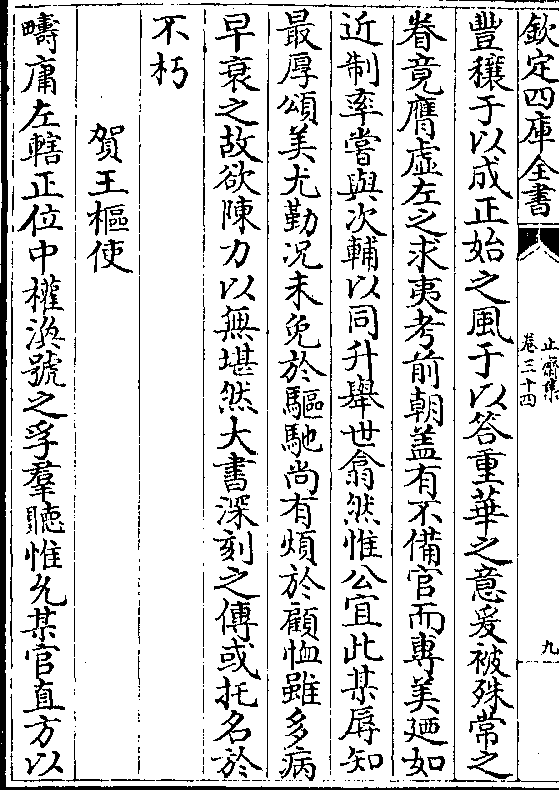 欽定四庫全書
止齋集
卷三十四
九
豐穰于以成正始之風于以答重華之意爰被殊常之
眷竟膺虛左之求夷考前朝盖有不備官而專美廼如
近制率嘗與次輔以同升舉世翕然惟公宜此某辱知
最厚頌美尤勤况未免於驅馳尚有煩於顧恤雖多病
早衰之故欲陳力以無堪然大書深刻之傳或托名於
不朽
賀王樞使
疇庸左轄正位中權渙號之孚羣聽惟允某官直方以